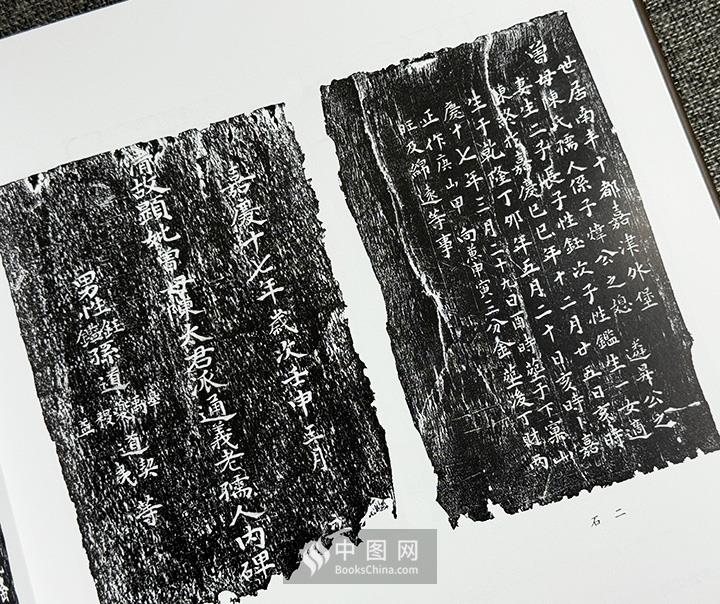 世居南丰十都嘉津外堡
曾母陳氏孺人係子煒公之媳遴昇公之
妻生二子長子性鈺次子性鑑生一女適
陳歿於嘉慶己巳年十二月廿五日亥時
生于乾隆丁卯年五月二十日亥時卜嘉
慶十七年二月二十九日酉時葬于下窠山
正作庚山甲向兼申寅三分金葬後丁財兩
旺久綿遠等事
石二
嘉慶十七年歲次壬申二月
故顯妣曾母陳太君派通義老孺人内碑
男性鈺鑑孫道
等
中图网
BooksChina.com